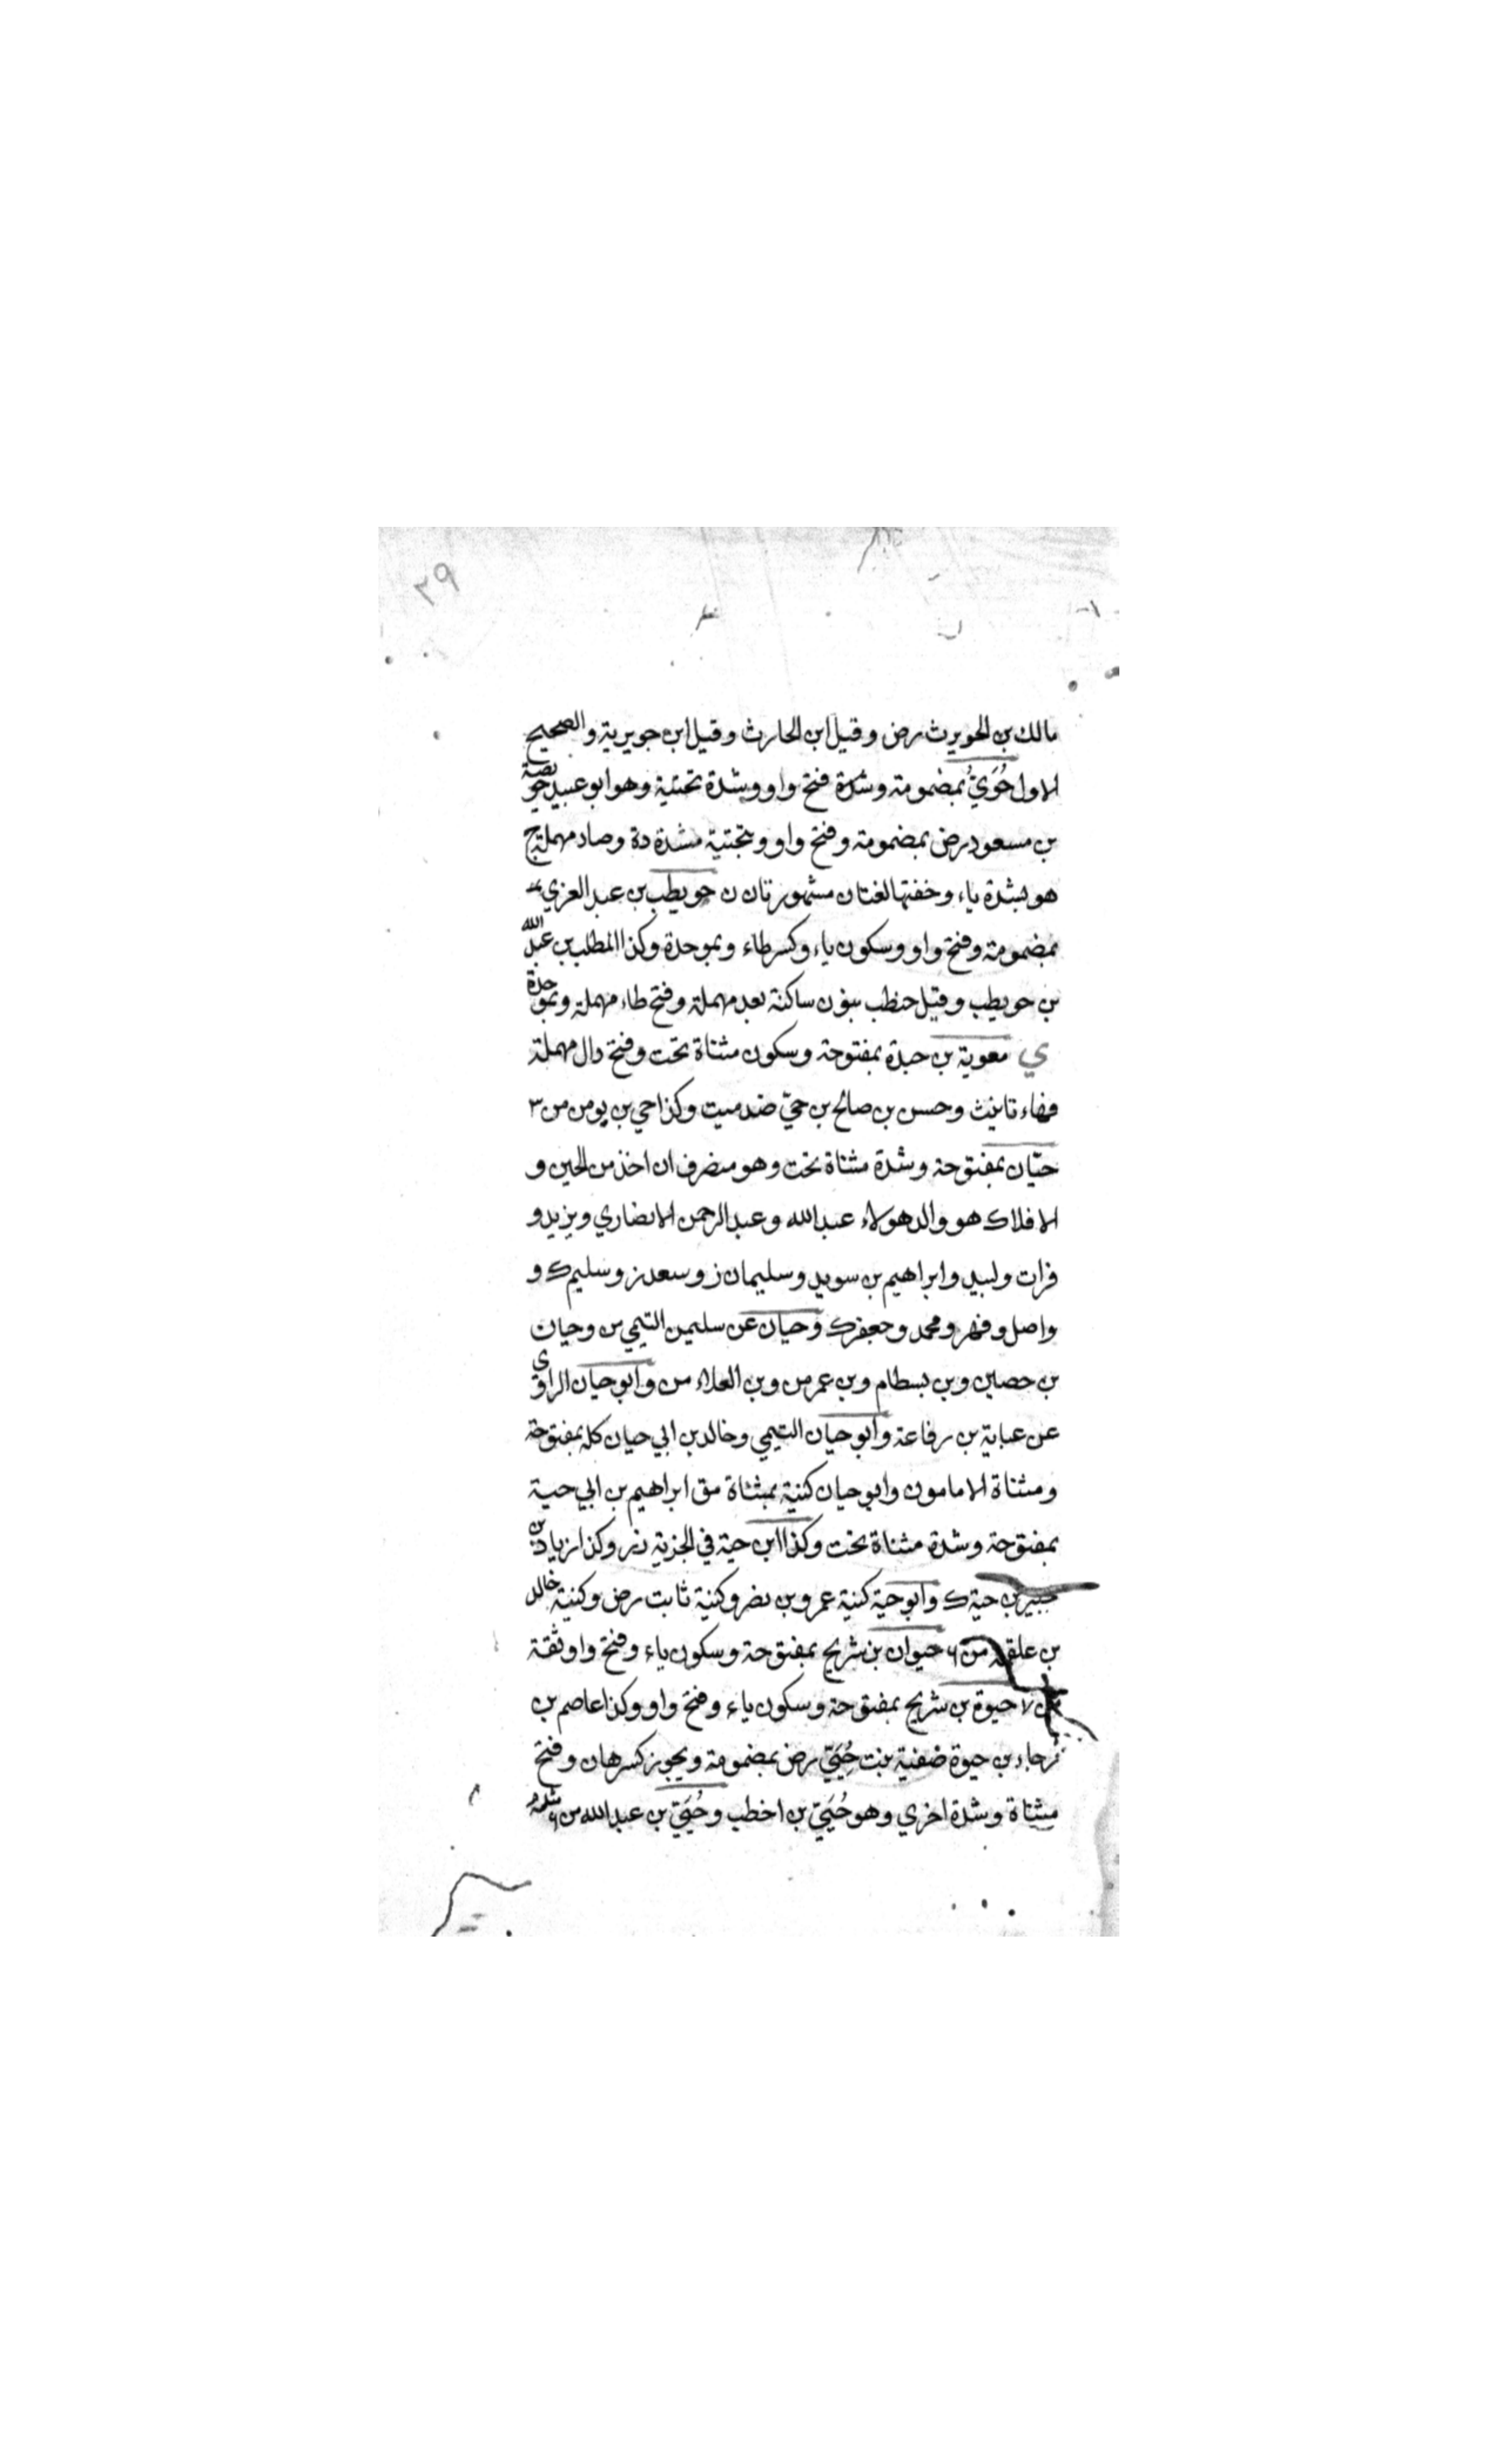 ٣٩
مالك بن الحويرث رض وقيل ابن الحارث وقيل ابن جويرية والصحيح
الاول حُوَيُّ بمضمومة وشدة فتح واو وبشدة تحتية وهو ابو عبيد حويصة
بن مسعود رض بمضمومة وفتح واو وبتحتية مشددة وصاد مهملة ج
هو بشدة ياء وخفتها لغتان مشهورتان ن حويطب بن عبد العزي
بمضمومة وفتح واو وسكون ياء وكسر طاء وبموحدة وكذا المطلب بن عبد الله
بن حويطب وقيل حنطب بنون ساكنة بعد مهملة وفتح طاء مهملة وبموحدة
ي معوية بن حيدة بمفتوحة وسكون مثناة تحت وفتح دال مهملة
فهاء تانيث وحسن بن صالح بن حيّ ضد ميت وكذا حي بن يومن من ٣
حيّان بمفتوحة وشدة مثناة تحت وهو منصرف ان اخذ من الحين و
الا فلاك هو والد هولاء عبد الله وعبد الرحمن الانصاري ويزيد و
فرات ولبيد وابراهيم بن سويد وسليمان ز وسعد ز وسليم ك و
واصل وفهر ومحمد وجعفر ك وحيان عن سليمن التيمي من وحيان
بن حصين وبن بسطام وبن عمر من وبن العلاء من وابو حيان الراوي
عن عباية بن رفاعة وابو حيان التيمي وخالد بن ابي حيان كله بمفتوحة
ومثناة الامامون وابو حيان كنية بمثناة مق ابراهيم بن ابي حية
بمفتوحة وشدة مثناة تحت وكذا ابن حية في الجزية نر وكذا زياد بن
جبير بن حية ك وابو حية كنية عمرو بن نصر وكنية ثابت رض وكنية خالد
بن علقمة من ٦ حيوان بن شريح بمفتوحة وسكون ياء وفتح واو ثقة
من ٧ حيوة بن شريح بمفتوحة وسكون ياء وفتح واو وكذا عاصم بن
رجاء بن حيوة صفية بنت حُيَيّ رض بمضمومة ويجوز كسرها ن وفتح
مثناة وشدة اخري وهو حُيَيّ بن اخطب وحُيَيّ بن عبد الله من ٦